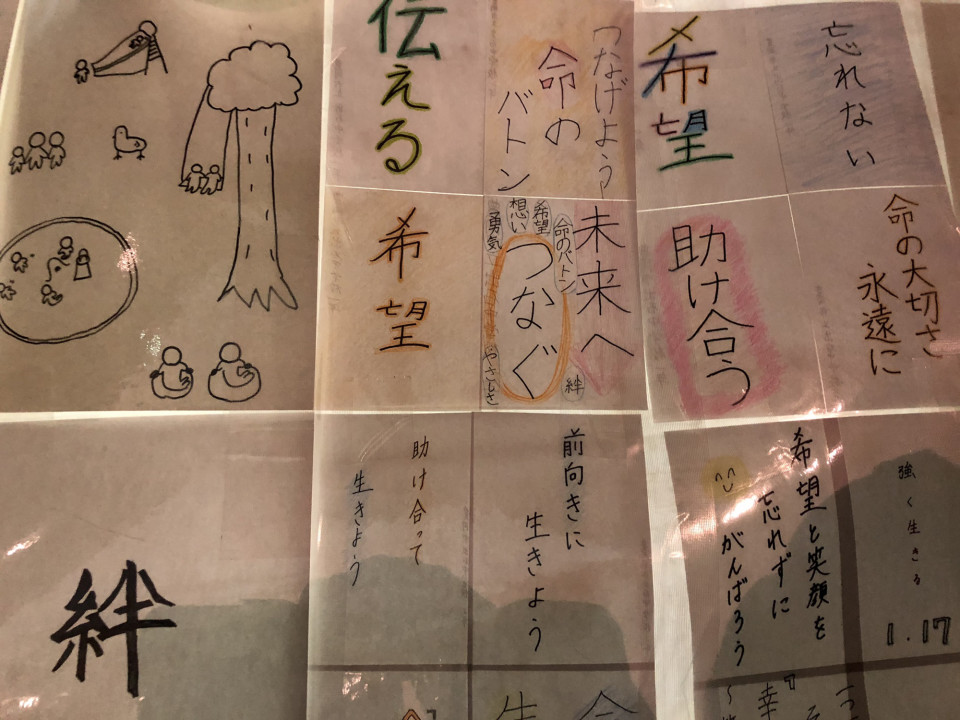 伝える
つなげよう
命の
バトン
希望
忘れない
希望
未来へ
つなぐ
命のバトン
希望
想い
勇気
やさしさ
絆
助け合う
命の大切さ
永遠に
絆
助け合って
生きよう
前向きに
生きよう
希望と笑顔を
忘れずに
がんばろう
強く生きる
1.17